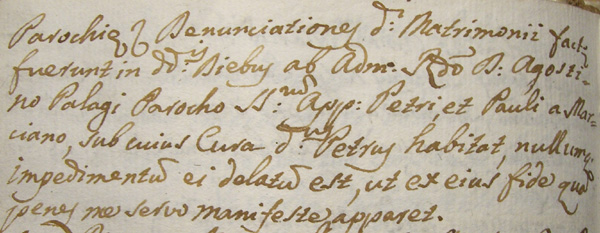 Parochie, & Denunciationes d.i Matrimonii facte
fuerunt in dd.is Diebus ab Adm. Rdo D: Agosti-
no Palagi Parocho SS.rum App: Petri, et Pauli a Mar-
ciano, sub cuius Cura d.us Petrus habitat, nullumq;
impedimentũ ei delatũ est, ut ex eius fide quã
penes me servo manifeste apparet.